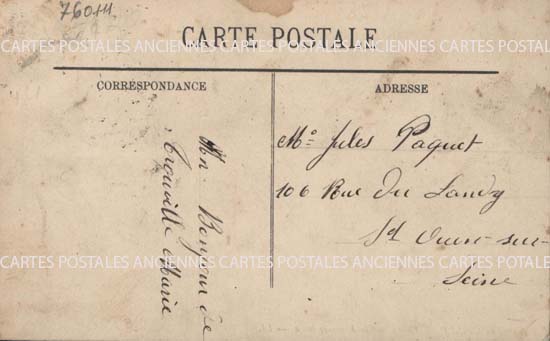 76044
CARTE POSTALE
CARTES POSTALES ANCIENNES CARTES POSTALES ANCIENNES CARTES POSTALES
CORRESPONDANCE
Un Bonjour de
Trouville Marie
ADRESSE
Me Jules Paquet
106 Rue du Landy
St Ouen-sur-
Seine
CARTES POSTALES ANCIENNES CARTES POSTALES ANCIENNES CARTES POSTALES